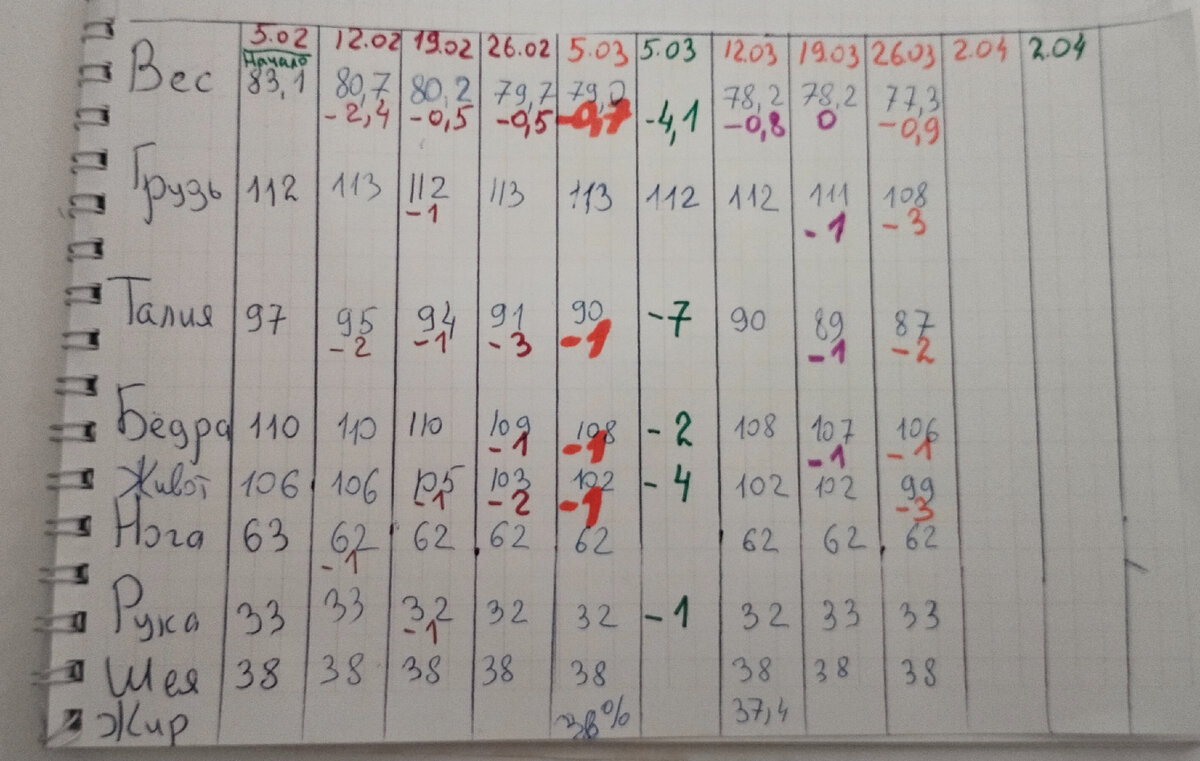 5.02 12.02 19.02 26.02 5.03 5.03 12.03 19.03 26.03 2.04 2.04
Начало
Вес 83,1 80,7 80,2 79,7 79,0 78,2 78,2 77,3
-2,4 -0,5 -0,5 -0,7 -4,1 -0,8 0 -0,9
Грузь 112 113 112 113 113 112 112 111 108
-1 -1 -3
Талия 97 95 94 91 90 -7 90 89 87
-2 -1 -3 -1 -1 -2
Бёдра 110 110 110 109 108 -2 108 107 106
-1 -1 -1 -1
Живот 106 106 105 103 102 -4 102 102 99
-1 -2 -1 -3
Нога 63 62 62 62 62 62 62 62
-1
Рука 33 33 32 32 32 -1 32 33 33
-1
Шея 38 38 38 38 38 38 38 38
Жир 38% 37,4